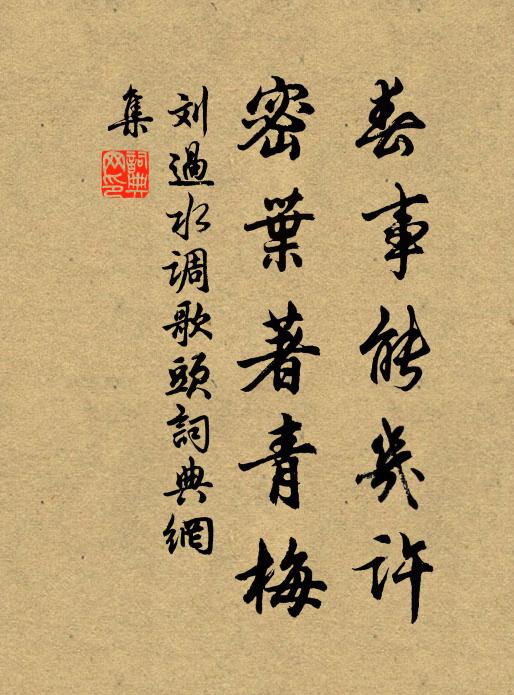 春事能幾許
密葉著青梅
刘過水调歌頭詞典網
集
詞典網印